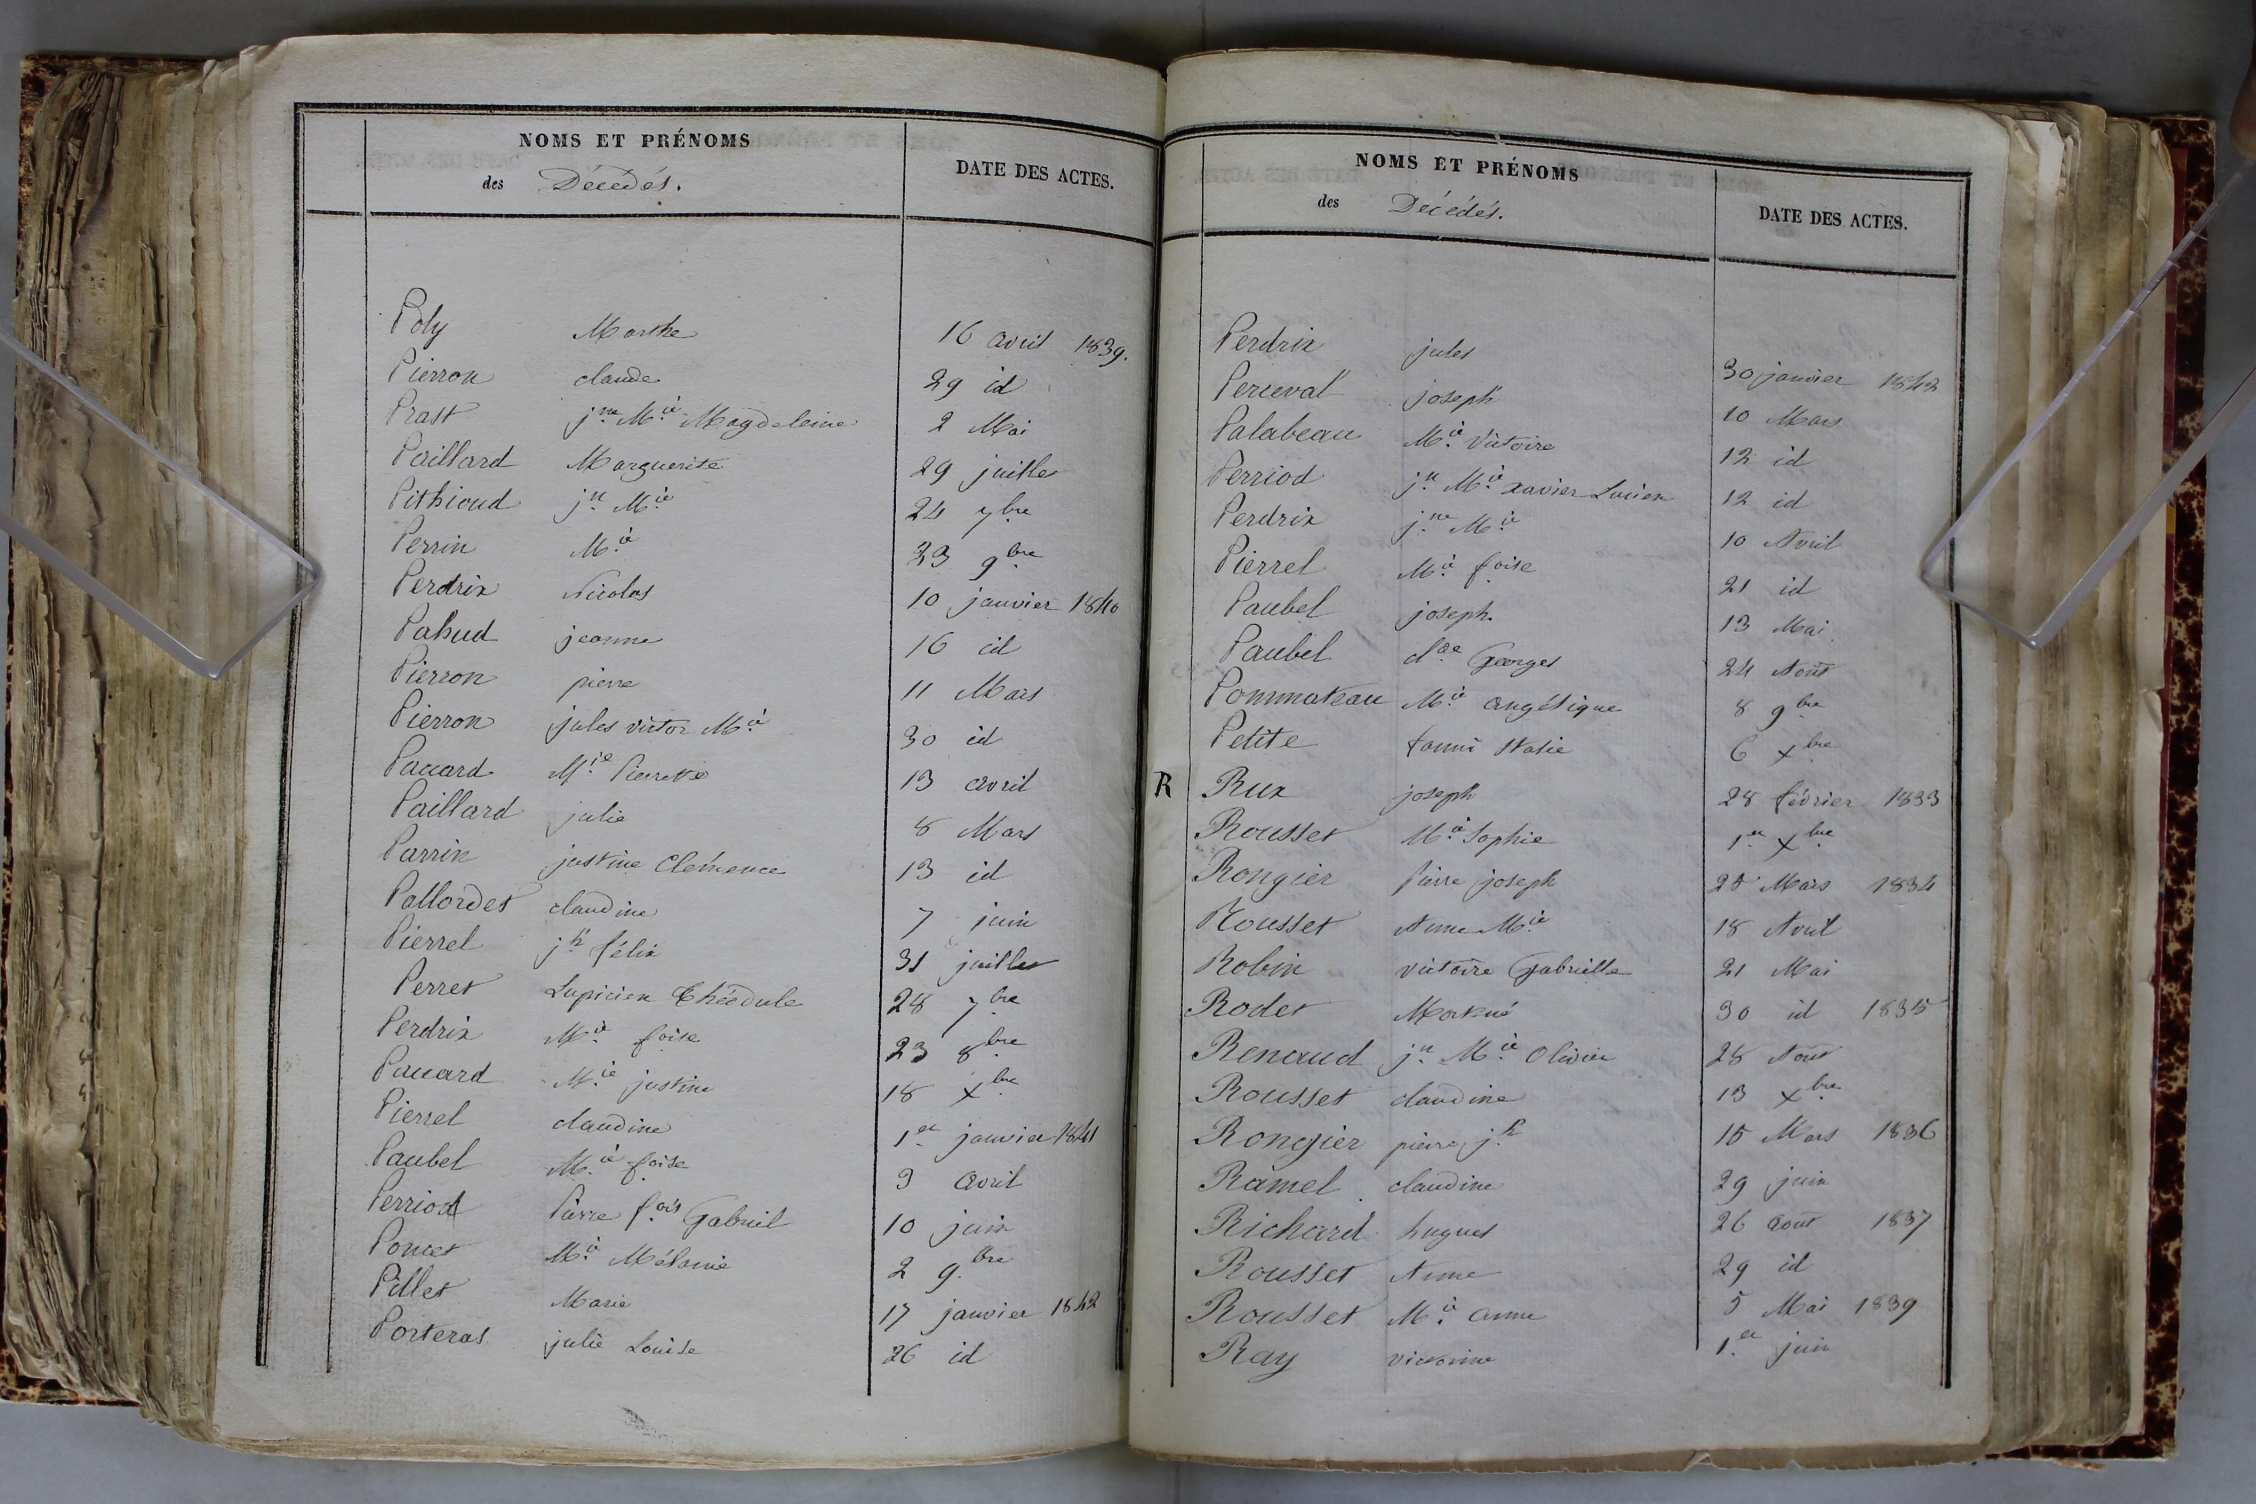 NOMS ET PRÉNOMS
des Décédés.
DATE DES ACTES.
Poly Marthe 16 avril 1839.
Pierron claude 29 id
Prast jne Mie Magdeleine 2 Mai
Paillard Marguerite 29 juillet
Pithioud jn Mie 24 7bre
Perrin Mie 23 9bre
Perdrix Nicolas 10 janvier 1840
Pahud jeanne 16 id
Pierron pierre 11 Mars
Pierron jules victor Mie 30 id
Paccard Mie Pierrette 13 avril
Paillard julie 8 Mars
Parrin justine Clémence 13 id
Pallordet claudine 7 juin
Pierrel jh félix 31 juillet
Perret Lupicien Théodule 28 7bre
Perdrix Mie foise 23 8bre
Paccard Mie justine 18 xbre
Pierrel claudine 1er janvier 1841
Paubel Mie foise 3 avril
Perriod Pierre fois Gabriel 10 juin
Poncet Mie Mélanie 2 9bre
Pillet Marie 17 janvier 1842
Porteras julie Louise 26 id
NOMS ET PRÉNOMS
des Décédés.
DATE DES ACTES.
Perdrix jules 30 janvier 1842
Perceval joseph 10 Mars
Palabeau Mie Victoire 12 id
Perriod jn Mie xavier Lucien 12 id
Perdrix jne Mie 10 Avril
Pierrel Mie foise 21 id
Paubel joseph 13 Mai
Paubel clde Georges 24 Août
Pommateau Mie angélique 8 9bre
Petite fanni 6 xbre
R Rux joseph 28 février 1833
Rousset Mie Sophie 1er xbre
Rongier Pierre joseph 25 Mars 1834
Rousset Anne Mie 18 Avril
Robin victoire Gabrielle 21 Mai
Rodet 30 id 1835
Renaud jn Mie Olivier 28 Août
Rousset claudine 13 xbre
Rongier pierre jh 15 Mars 1836
Ramel claudine 29 juin
Richard hugues 26 août 1837
Rousset Anne 29 id
Rousset Mie anne 5 Mai 1839
Ray victorine 1er juin